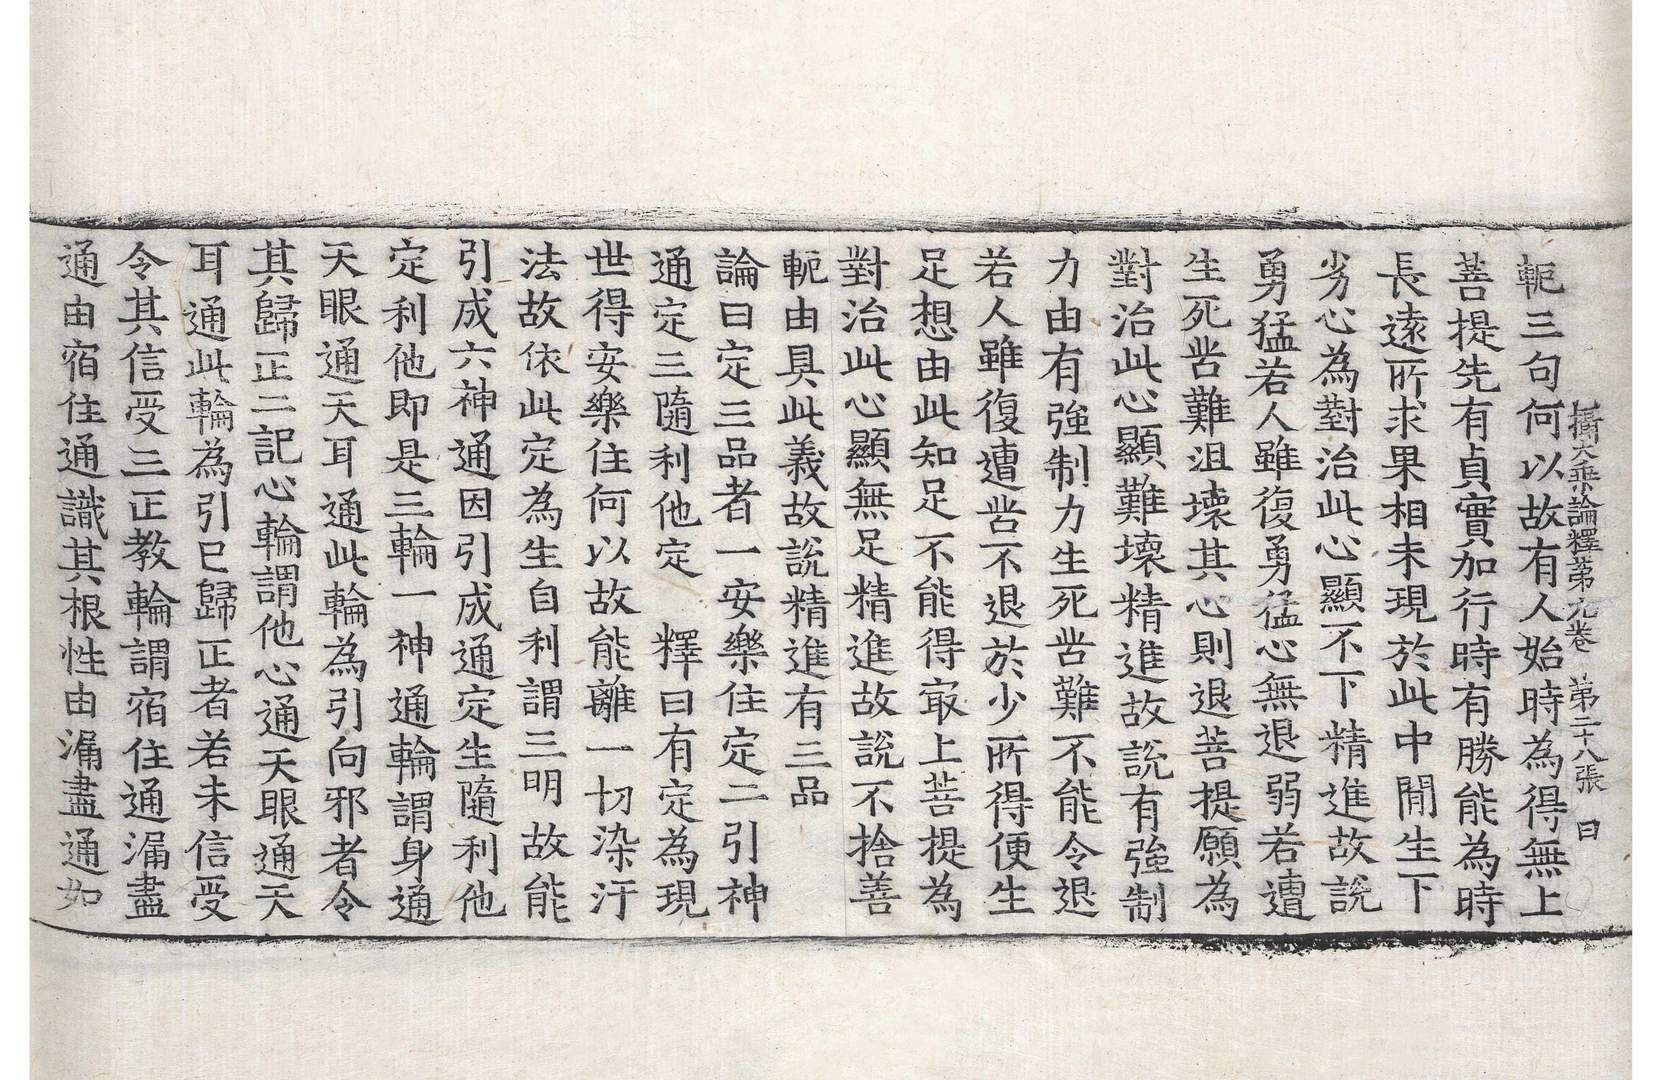 攝大乘論釋第九卷　第二十八張　曰
軛三句何以故有人始時為得無上
菩提先有貞實加行時有勝能為時
長遠所求果相未現於此中閒生下
劣心為對治此心顯不下精進故說
勇猛若人雖復勇猛心無退弱若遭
生死苦難沮壞其心則退菩提願為
對治此心顯難壞精進故說有強制
力由有強制力生死苦難不能令退
若人雖復遭苦不退於少所得便生
足想由此知足不能得㝡上菩提為
對治此心顯無足精進故說不捨善
軛由具此義故說精進有三品
論曰定三品者一安樂住定二引神
通定三隨利他定　釋曰有定為現
世得安樂住何以故能離一切染汙
法故依此定為生自利謂三明故能
引成六神通因引成通定生隨利他
定利他即是三輪一神通輪謂身通
天眼通天耳通此輪為引向邪者令
其歸正二記心輪謂他心通天眼通天
耳通此輪為引已歸正者若未信受
令其信受三正教輪謂宿住通漏盡
通由宿住通識其根性由漏盡通如